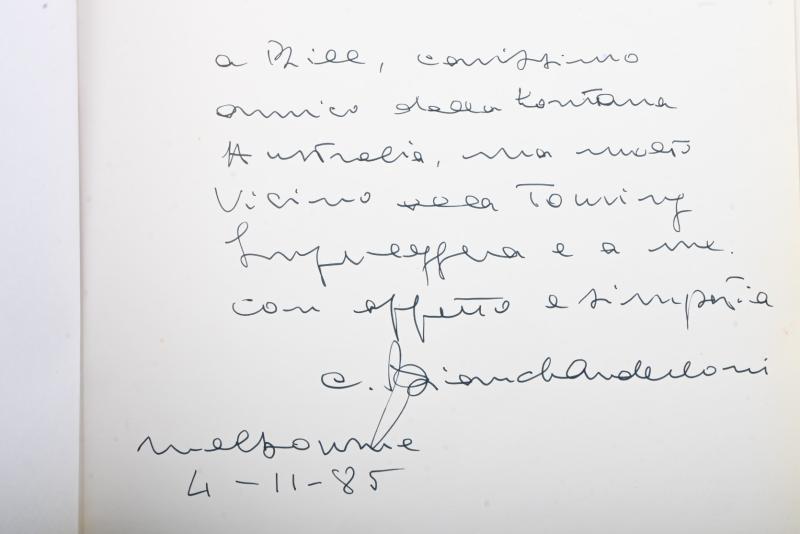 a Bill, carissimo
amico della lontana
Australia, ma molto
vicino alla Touring
Superleggera e a me.
con affetto e simpatia
C. Bianchi Anderloni
Melbourne
4-11-85